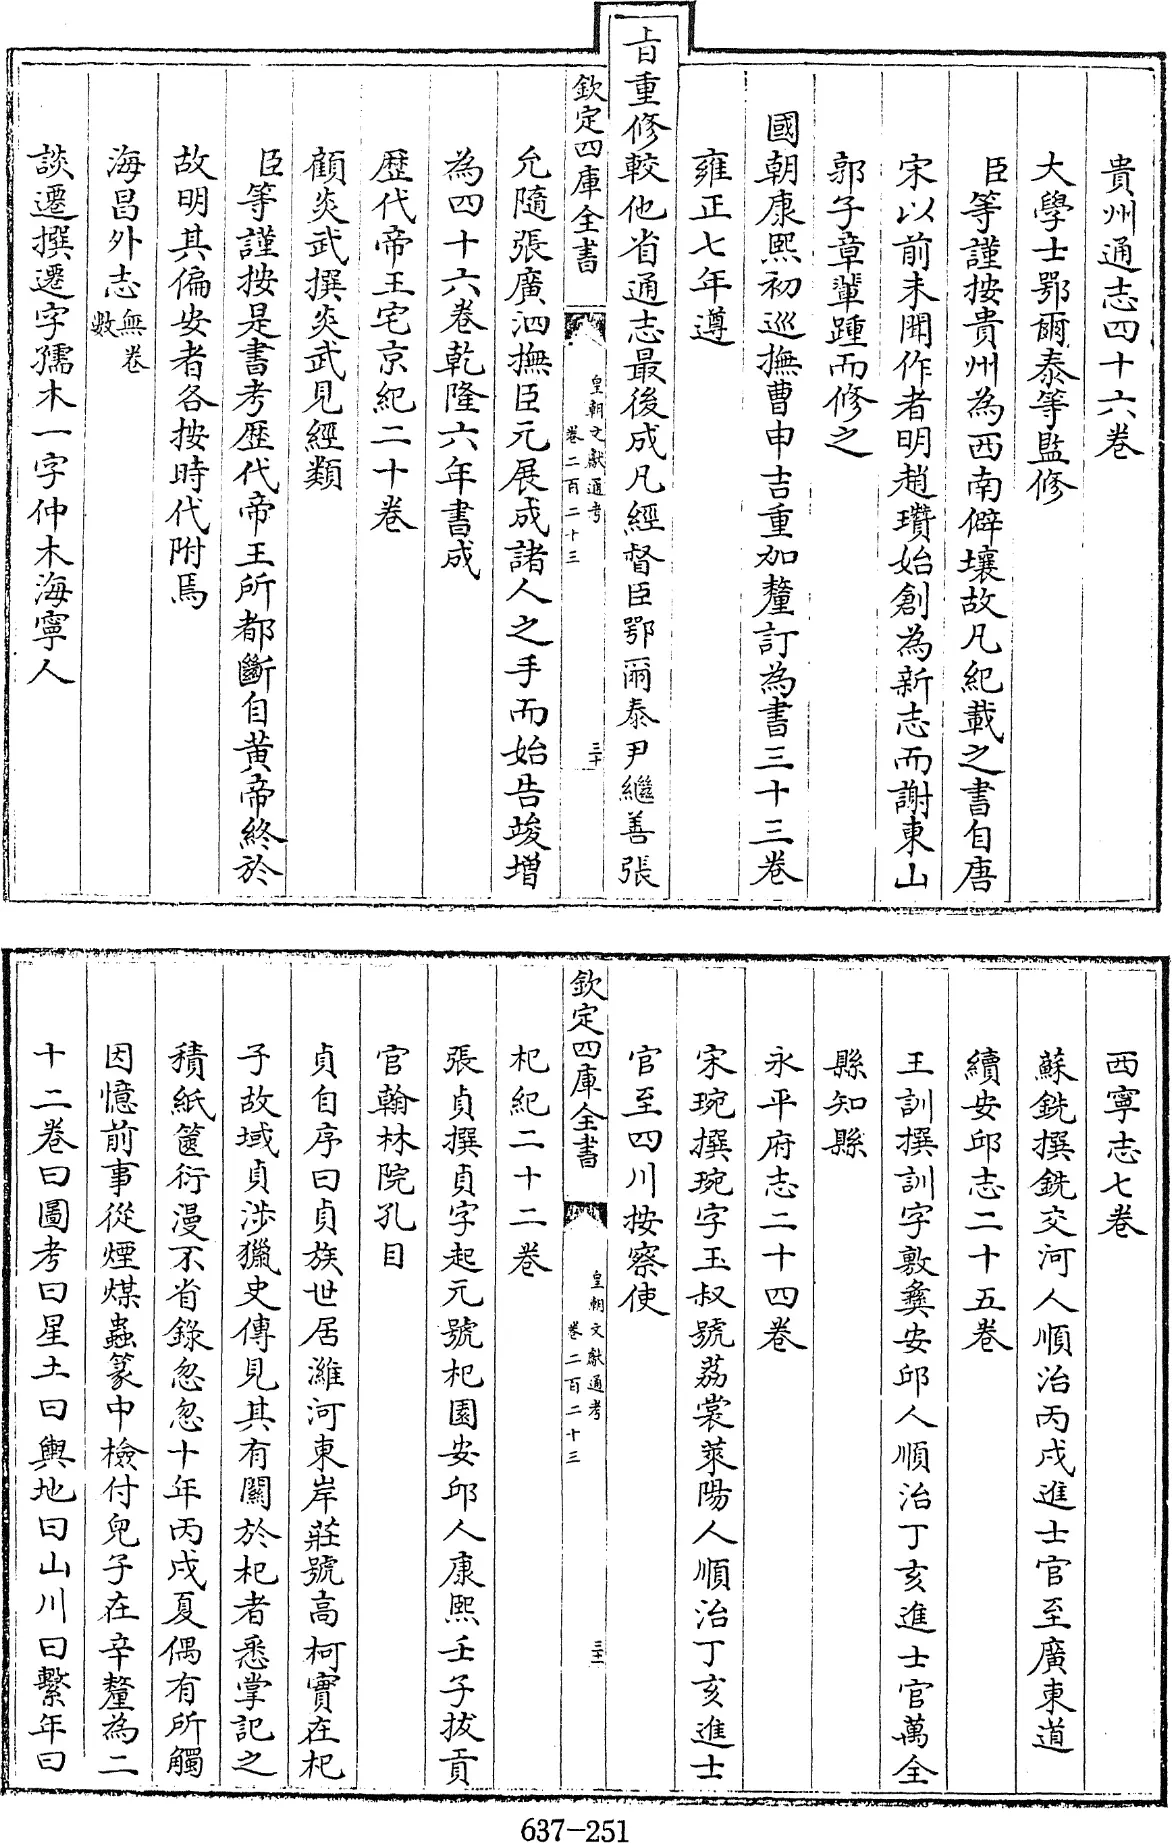 貴州通志四十六卷
大學士鄂爾泰等監修
臣等謹按貴州為西南僻壤故凡紀載之書自唐
宋以前未聞作者明趙瓚始創為新志而謝東山
郭子章輩踵而修之
國朝康熙初巡撫曹申吉重加釐訂為書三十三卷
雍正七年遵
旨重修較他省通志最後成凡經督臣鄂爾泰尹繼善張
欽定四庫全書
皇朝文獻通考
卷二百二十三
三十
允隨張廣泗撫臣元展成諸人之手而始告竣增
為四十六卷乾隆六年書成
歴代帝王宅京紀二十卷
顧炎武撰炎武見經類
臣等謹按是書考歴代帝王所都斷自黄帝終於
故明其偏安者各按時代附焉
海昌外志無卷
數
談遷撰遷字孺木一字仲木海寧人
西寧志七卷
蘇銑撰銑交河人順治丙戌進士官至廣東道
續安邱志二十五卷
王訓撰訓字敷彝安邱人順治丁亥進士官萬全
縣知縣
永平府志二十四卷
宋琬撰琬字玉叔號荔裳萊陽人順治丁亥進士
官至四川按察使
欽定四庫全書
皇朝文獻通考
卷二百二十三
三十一
杞紀二十二卷
張貞撰貞字起元號杞園安邱人康熙壬子拔貢
官翰林院孔目
貞自序曰貞族世居濰河東岸莊號高柯實在杞
子故域貞涉獵史傳見其有關於杞者悉掌記之
積紙篋衍漫不省錄忽忽十年丙戌夏偶有所觸
因憶前事從煙煤蟲篆中檢付兒子在辛釐為二
十二卷曰圖考曰星土曰輿地曰山川曰繫年曰
637-251